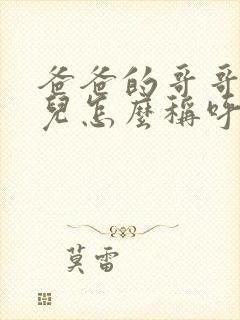 爸爸的哥哥
兒怎麼稱呼
莫雷